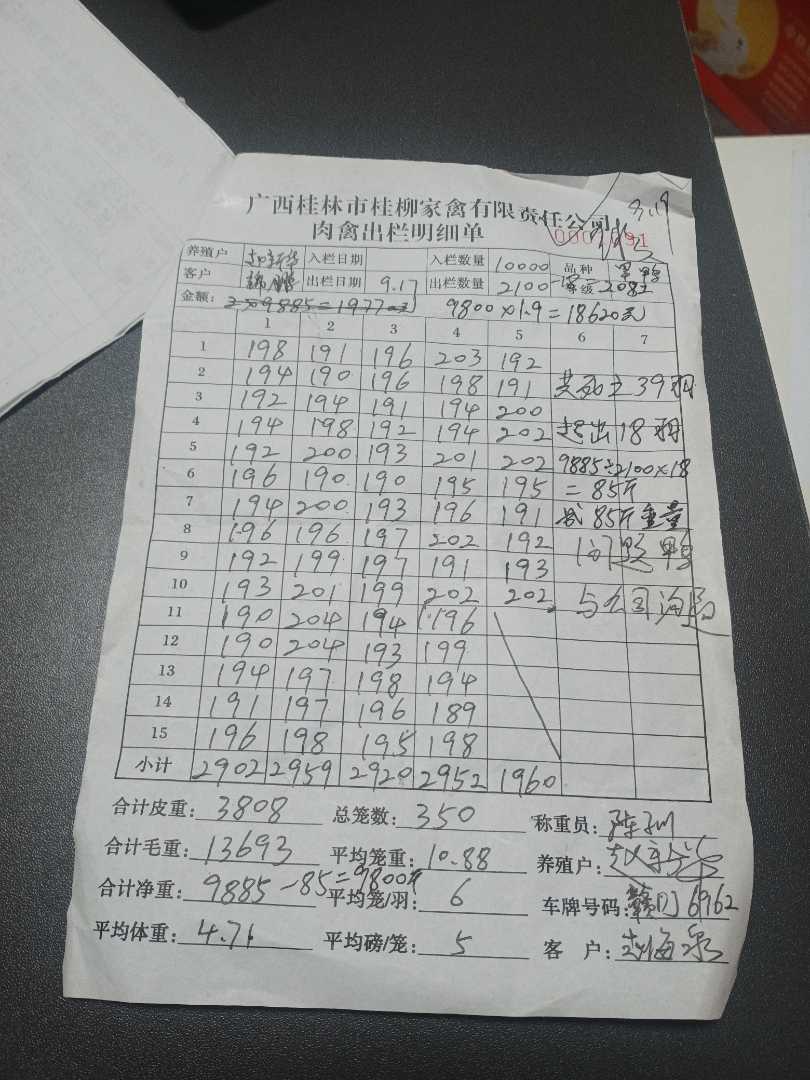 9.19
广西桂林市桂柳家禽有限责任公司
肉禽出栏明细单
养殖户 入栏日期 入栏数量 10000 品种
客户 出栏日期 9.17 出栏数量 2100-18= 等级 2082
金额: 9800×1.9=18620元
1 2 3 4 5 6 7
1 198 191 196 203 192
2 194 190 196 198 191 39羽
3 192 194 191 194 200
4 194 198 192 194 202 超出18羽
5 192 200 193 201 202 9885÷2100×18
6 196 190 190 195 195 =85斤
7 194 200 193 196 191 减85斤重量
8 196 196 197 202 192 问题鸭
9 192 199 197 191 193
10 193 201 199 202 202 与公司沟通
11 190 204 194 196
12 190 204 193 199
13 194 197 198 194
14 191 197 196 189
15 196 198 195 198
小计 2902 2959 2920 2952 1960
合计皮重: 3808 总笼数: 350 称重员:
合计毛重: 13693 平均笼重: 10.88 养殖户:
合计净重: 9885-85=9800斤 平均笼/羽: 6 车牌号码: 赣 6962
平均体重: 4.71 平均磅/笼: 5 客 户: